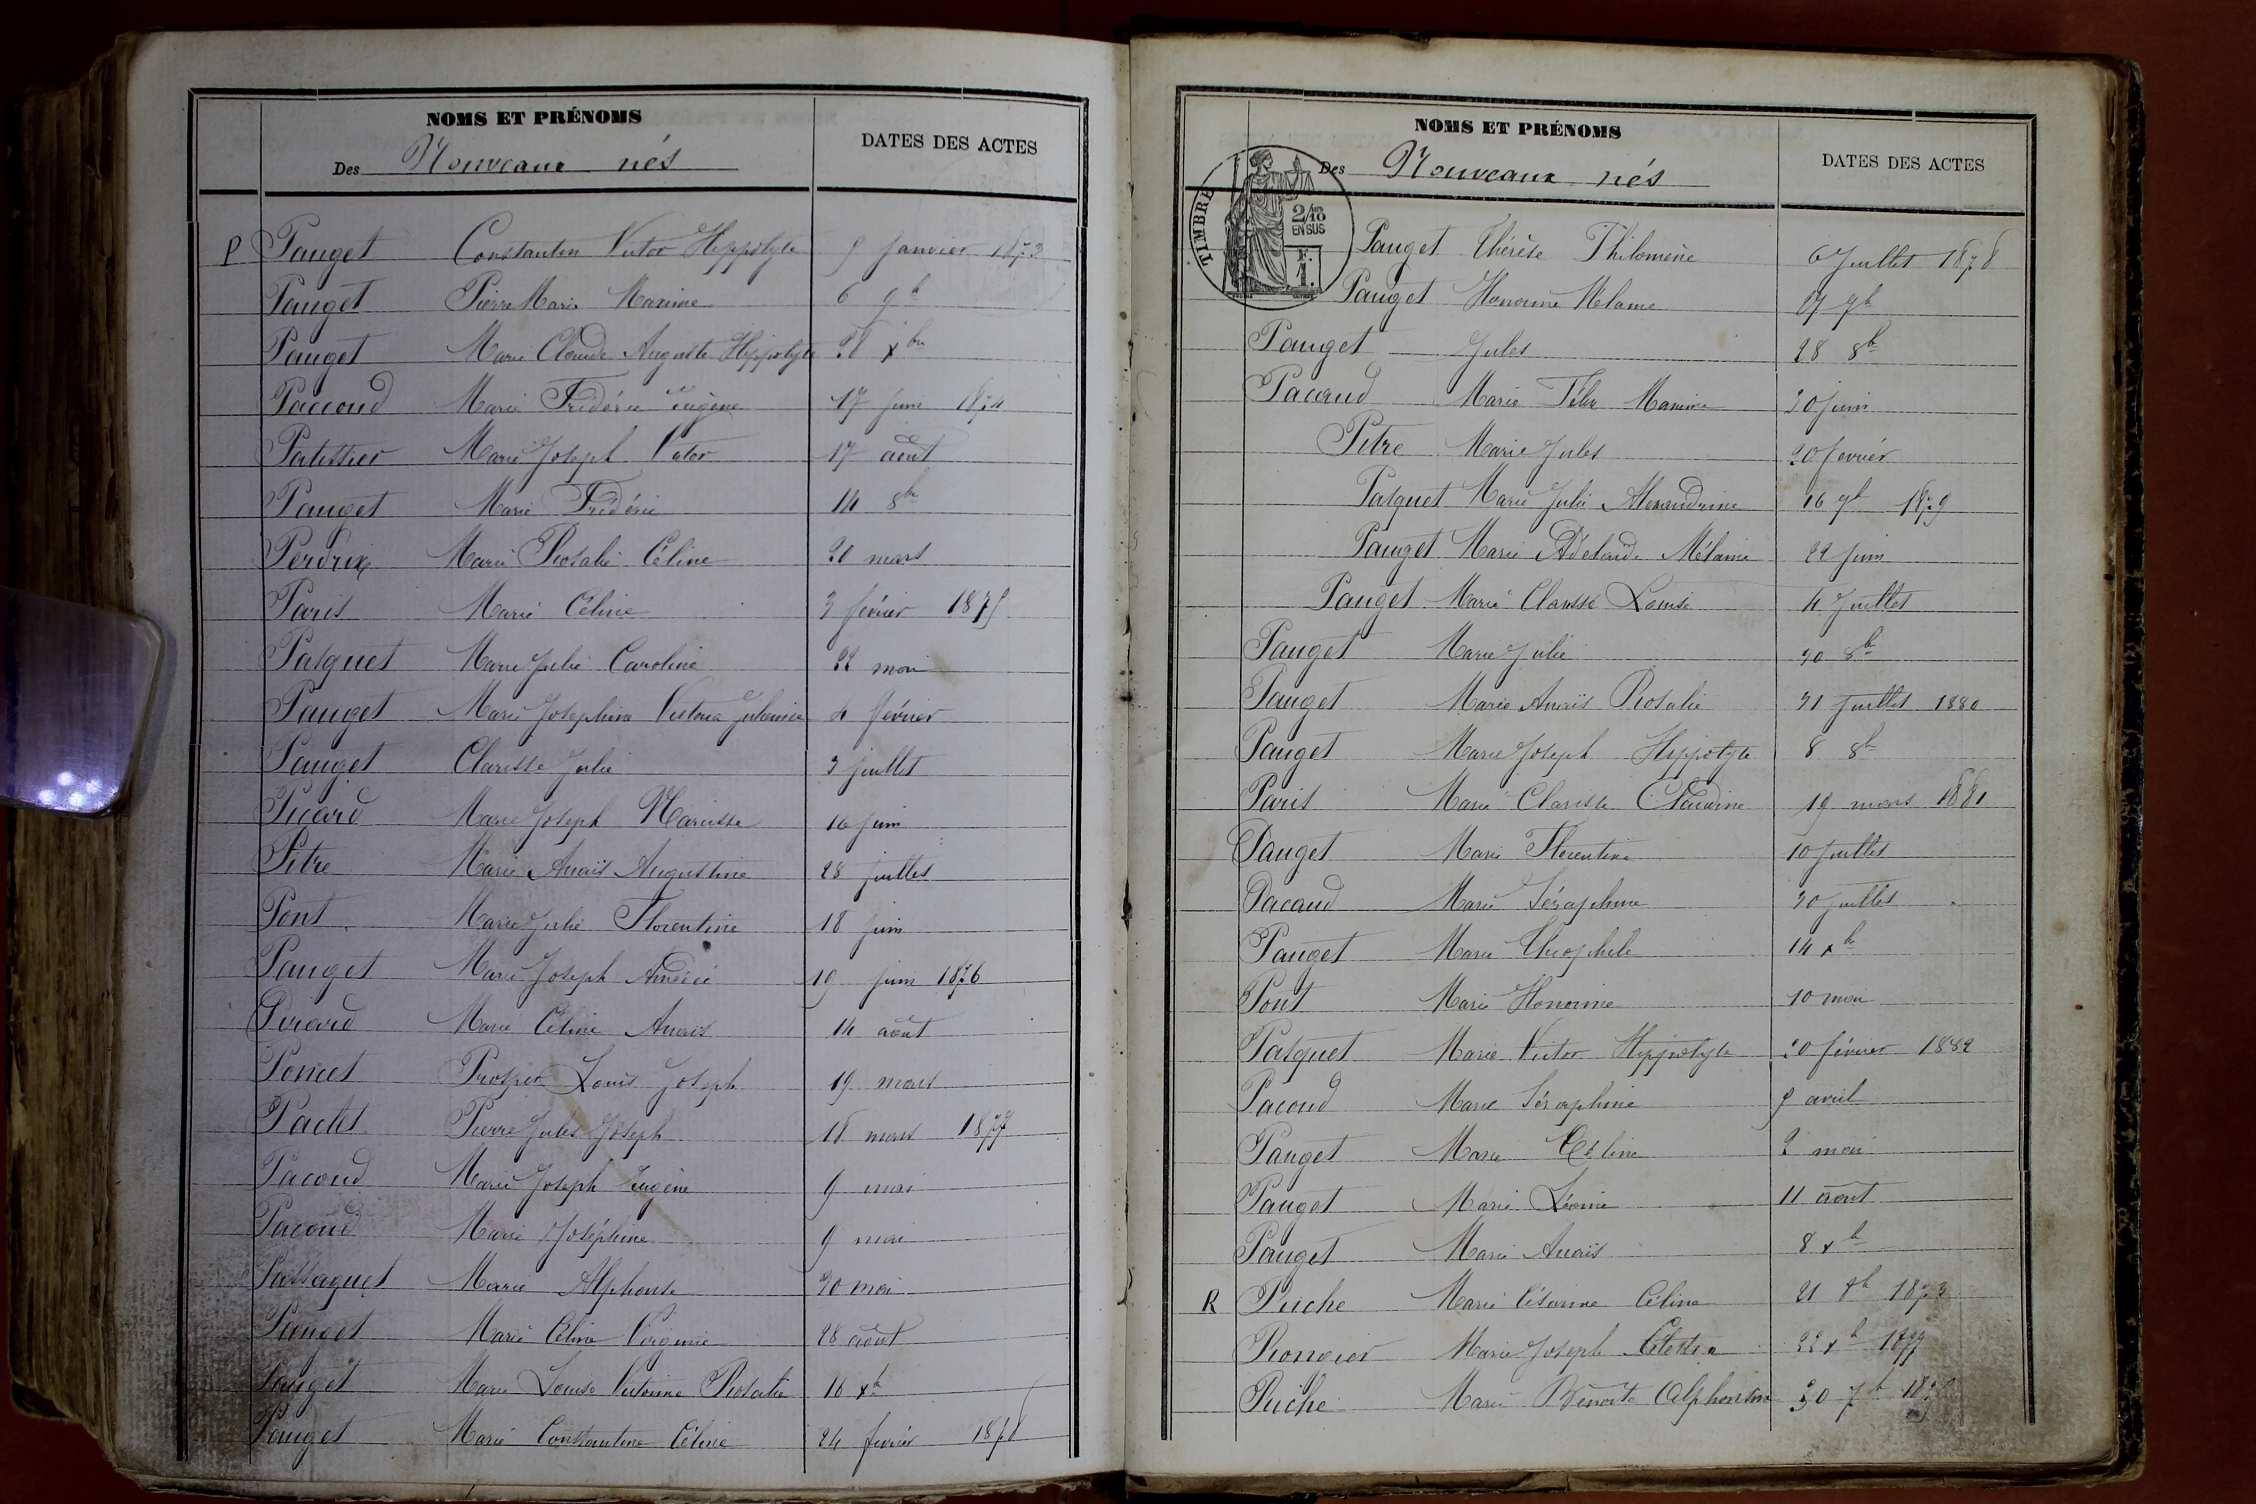 NOMS ET PRÉNOMS
Des Nouveaux nés
DATES DES ACTES
P Pauget Constantin Victor Hippolyte 9 Janvier 1873
Pauget Pierre Marie Maxime 6 9b
Pauget Marie Claude Auguste Hippolyte xbre
Paccoud Marie Frédéric Eugène 17 juin 1874
Patissier Marie Joseph Victor 17 août
Pauget Marie Frédéric 14 8bre
Perdrix Marie Rosalie Céline 20 mars
Paris Marie Céline 3 février 1875
Pasquet Marie Julie Caroline 22 mai
Pauget Marie Joséphine Victoria 4 février
Pauget Clarisse Julie 3 juillet
Picard Marie Joseph Narcisse 16 juin
Pitre Marie Anaïs Augustine 28 juillet
Pont Marie Julie Florentine 18 juin
Pauget Marie Joseph Amédée 19 juin 1876
Picard Marie Céline Anaïs 14 août
Poncet Prosper Louis Joseph 19 mars
Paclet Pierre Jules Joseph 18 mars 1877
Pacoud Marie Joseph Eugène 9 mai
Pacoud Marie Joséphine 9 mai
Passaquet Marie Alphonse 30 mai
Pauget Marie Céline Virginie 28 août
Pauget Marie Louise Victorine Rosalie 18 xb
Pauget Marie Constantine Céline 24 février 1878
NOMS ET PRÉNOMS
Des Nouveaux nés
DATES DES ACTES
TIMBRE
2/10
EN SUS
F.
1.
Pauget Thérèse Philomène 6 Juillet 1878
Pauget Honorine Mélanie 17 9b
Pauget Jules 28 8b
Pacoud Marie Félix 30 juin
Pitre Marie Jules 20 février
Pasquet Marie Julie Alexandrine 16 9b 1879
Pauget Marie Adélaïde Mélanie 22 juin
Pauget Marie Clarisse Louise 4 juillet
Pauget Marie Julie 30 8b
Pauget Marie Anaïs Rosalie 31 juillet 1880
Pauget Marie Joseph Hippolyte 8 8b
Paris Marie Clarisse Claudine 19 mars 1881
Pauget Marie Florentine 10 juillet
Pacaud Marie Séraphine 30 juillet
Pauget Marie Théophile 14 xb
Pont Marie Honorine 10 mai
Pasquet Marie Victor Hippolyte 20 février 1882
Pacoud Marie Séraphine 9 avril
Pauget Marie Céline 2 mai
Pauget Marie Léonie 11 août
Pauget Marie Anaïs 8 xb
R Puche Marie Césarine Céline 21 1873
Marie Joseph Célestin 22 xb 1877
Puche Marie Benoîte Alphonsine 30 7b